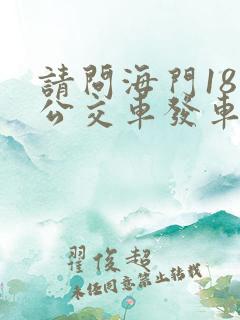 請問海門18
公交車發車
翟俊超
未经同意禁止转载